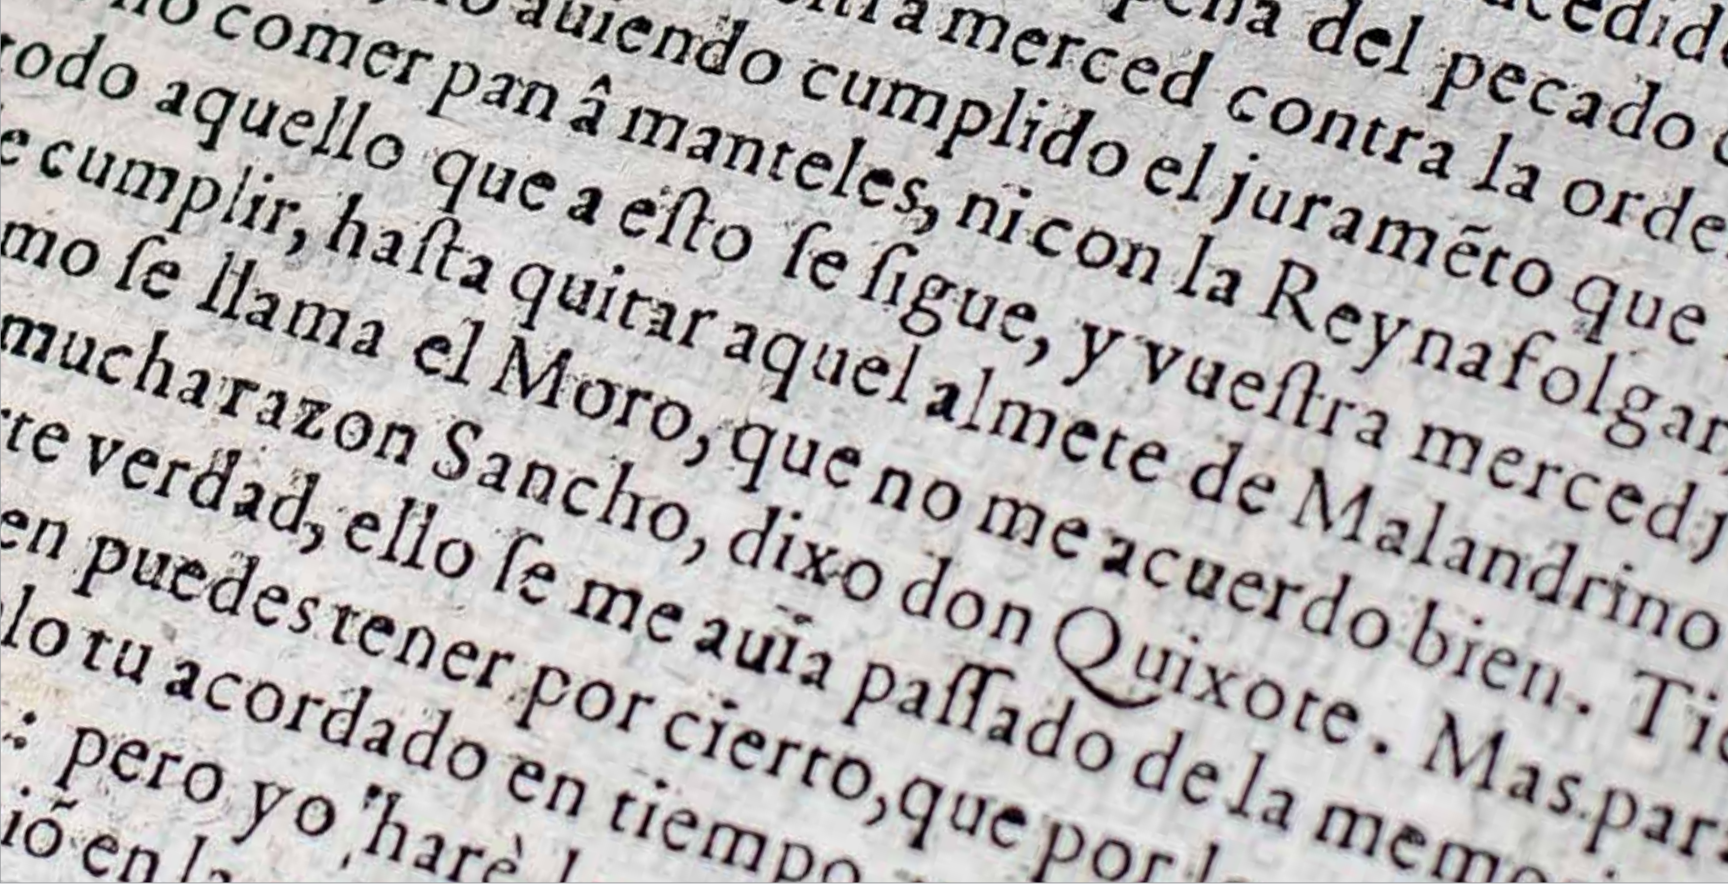 del pecado
merced contra la orde
auiendo cumplido el juramẽto que
no comer pan â manteles, ni con la Reyna folgar
todo aquello que a eſto ſe ſigue, y vueſtra merced j
e cumplir, haſta quitar aquel almete de Malandrino
mo ſe llama el Moro, que no me acuerdo bien. Tie
mucha razon Sancho, dixo don Quixote. Mas par
rte verdad, ello ſe me auia paſſado de la memo
en puedes tener por cierto, que por l
lo tu acordado en tiempo
: pero yo harè
iõ en la